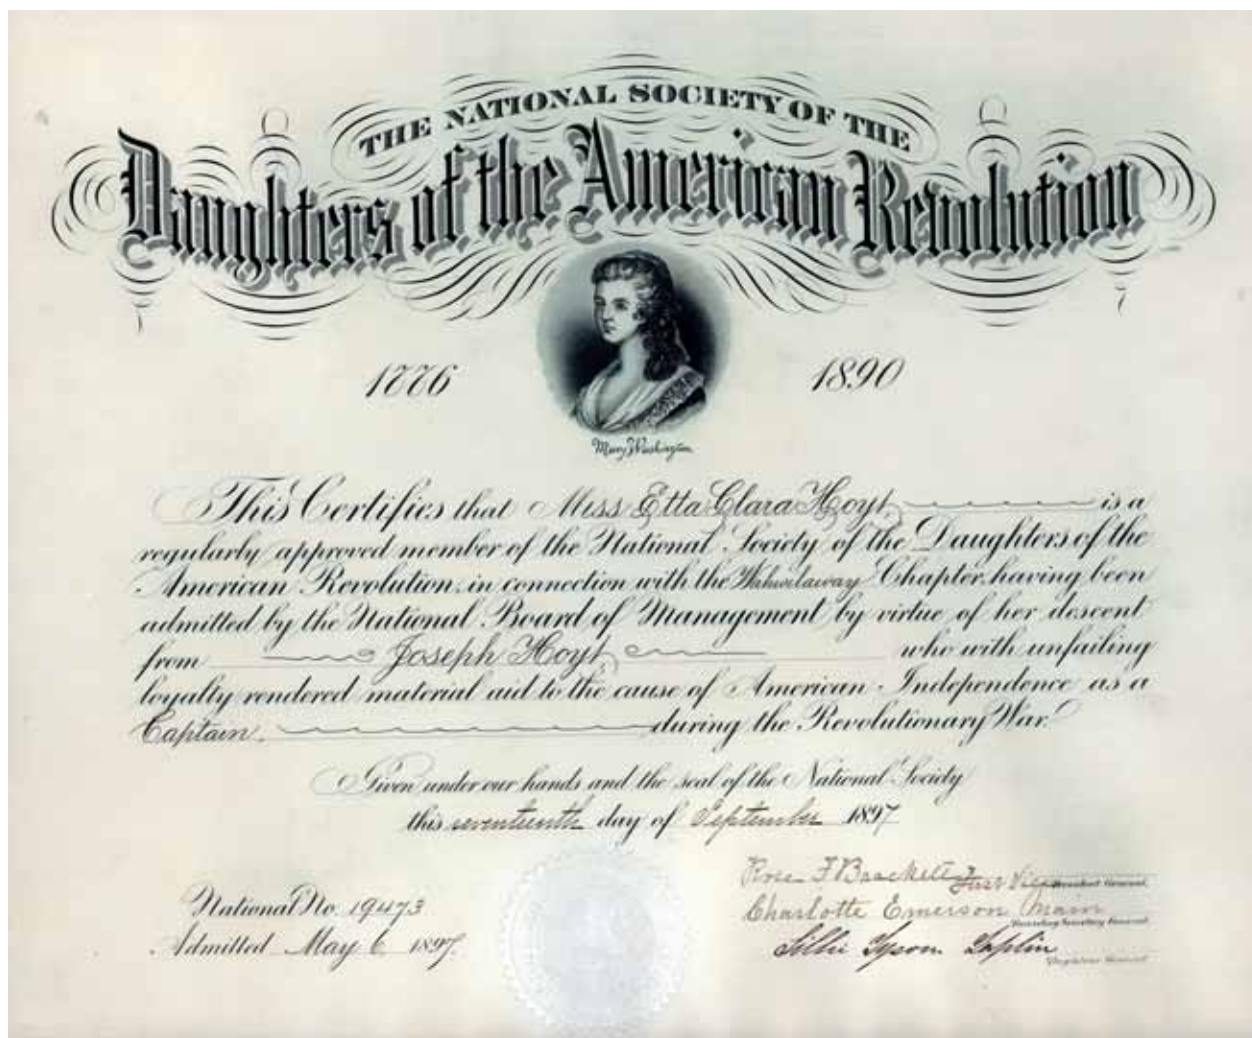 THE NATIONAL SOCIETY OF THE
Daughters of the American Revolution
1776
1890
Mary Washington
This Certifies that Miss Etta Clara Hoyt is a
regularly approved member of the National Society of the Daughters of the
American Revolution, in connection with the Chapter, having been
admitted by the National Board of Management by virtue of her descent
from Joseph Hoyt who with unfailing
loyalty rendered material aid to the cause of American Independence as a
Captain. during the Revolutionary War.
Given under our hands and the seal of the National Society
this seventeenth day of September 1897
National No. 19473
Admitted May 6, 1897.
Rose F Brackett First Vice President General.
Charlotte Emerson Main
Recording Secretary General.
Lillie Tyson
Registrar General